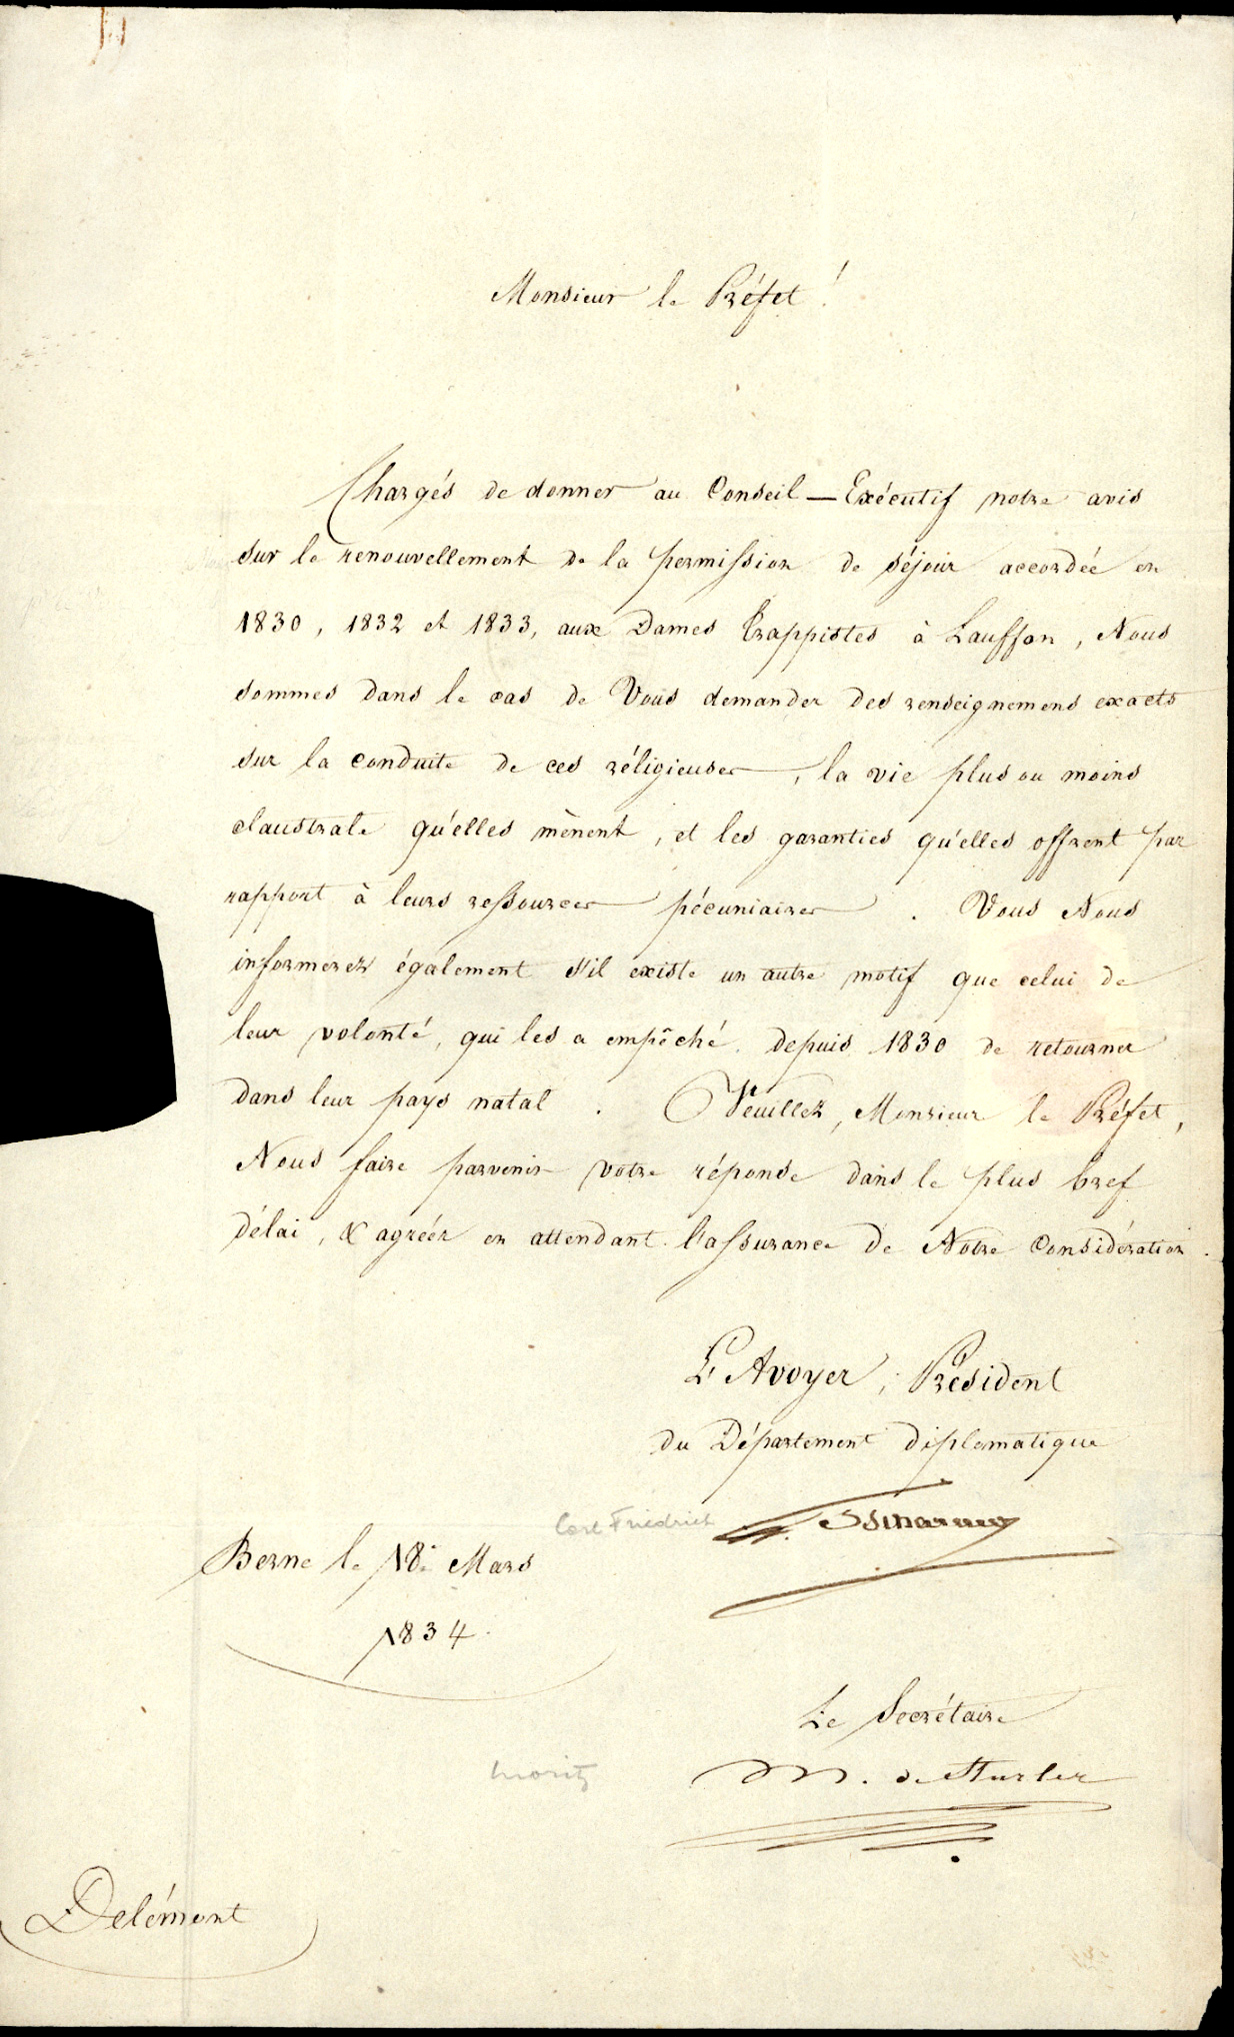 Monsieur le Préfet!
Chargés de donner au Conseil-Exécutif notre avis
sur le renouvellement de la permission de séjour accordée en
1830, 1832 et 1833, aux Dames Trappistes à Lauffon, Nous
sommes dans le cas de Vous demander des renseignemens exacts
sur la conduite de ces réligieuses, la vie plus ou moins
claustrale qu'elles mènent, et les garanties qu'elles offrent par
rapport à leurs ressources pécuniaires. Vous Nous
informerez également s'il existe un autre motif que celui de
leur volonté, qui les a empêché depuis 1830 de retourner
dans leur pays natal. Veuillez, Monsieur le Préfet,
Nous faire parvenir votre réponse dans le plus bref
délai, & agréer en attendant l'assurance de Notre Considération.
L'Avoyer, Président
du Département diplomatique
Carl Friedrich
F. Tscharner
Berne le 18. Mars
1834.
Le Secrétaire
Moritz
M. de Sturler
Delémont